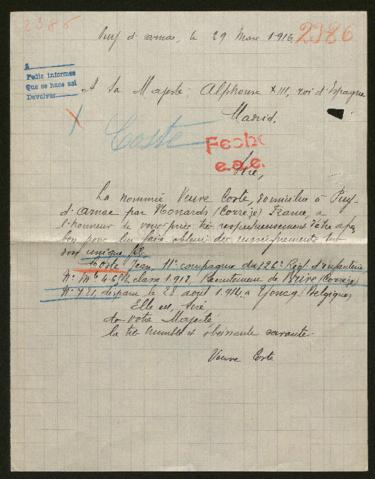 2386
Puy d'arnac, le 29 Mars 1916
2386
Pedir informes
Que se hace así
Devolver
A Sa Majesté Alphonse XIII, roi d'Espagne
Madrid.
Coste
Fecho
Sire,
La nommée Veuve Coste, domiciliée à Puy-
d'arnac par Nonards (Corrèze) France, a
l'honneur de vous prier très respectueusement d'être assez
bon pour lui faire obtenir des renseignements sur
son unique fils
Coste Jean, 11e compagnie du 126e Regt d'infanterie
classe 1912, Recrutement de Brive (Corrèze)
disparu le 28 août 1914 à Belgique
Elle est, Sire,
de votre Majesté
la très humble et obéissante servante.
Veuve Coste